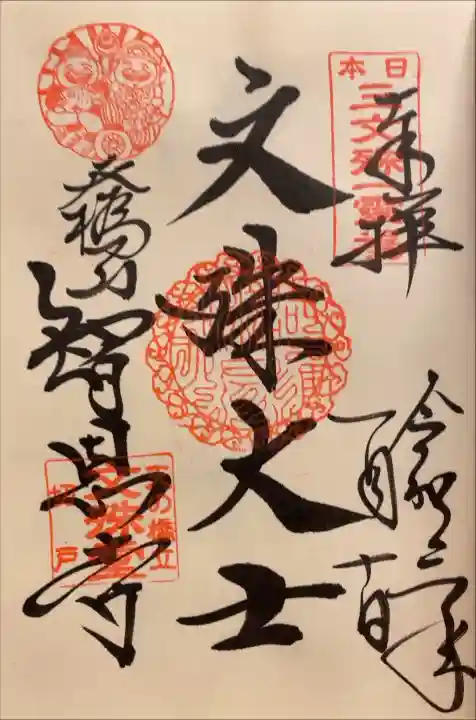 日本
三文殊一霊場
奉拝
令和二年
十日
文殊大士
天橋山
智恩寺
天の橋立
文殊堂
切戸